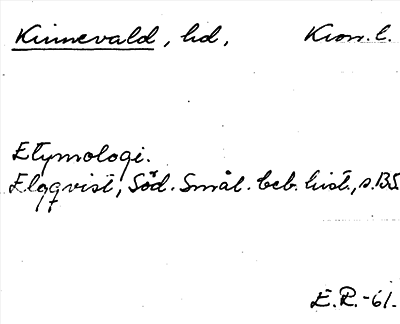 Kinnevald, hd, Kron. l.
Etymologi.
Elgqvist, Söd. Smål. beb. hist., s. 135
E.R.-61.